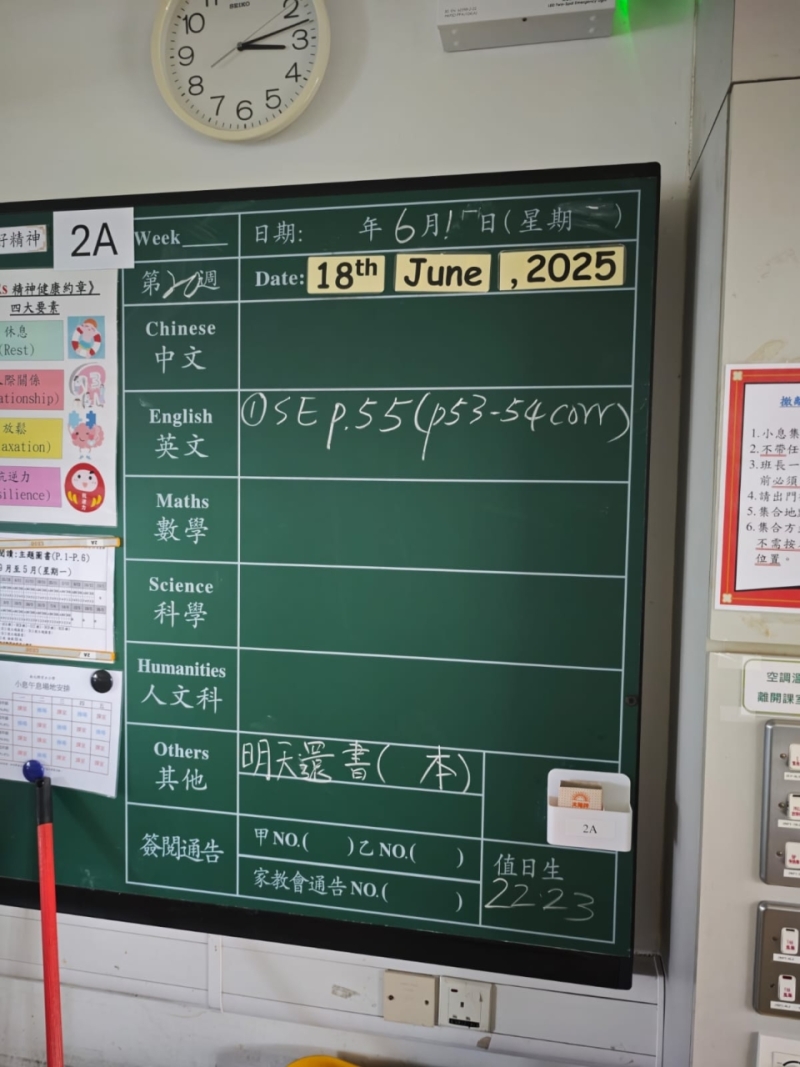 SEIKO
10
11
2
9
3
8
4
7
6
5
好精神
2A
Week
日期: 年 6 月 日(星期 )
第20週
Date: 18th June , 2025
精神健康約章》
四大要素
休息
(Rest)
人際關係
放鬆
抗逆力
Chinese
中文
English
英文
①SE p.55(p53-54 corr)
Maths
數學
Science
科學
Humanities
人文科
Others
其他
明天還書( 本)
2A
簽閱通告
甲NO.( )乙NO.( )
家教會通告NO.( )
值日生
22.23
閱讀:主題圖書(P.1-P.6)
月至5月(星期一)
小息午息場地安排
1. 小息集
2. 不帶任
3. 班長一
前必須
4. 請出門
5. 集合地
6. 集合方
不需按
位置。
空調溫
離開課室